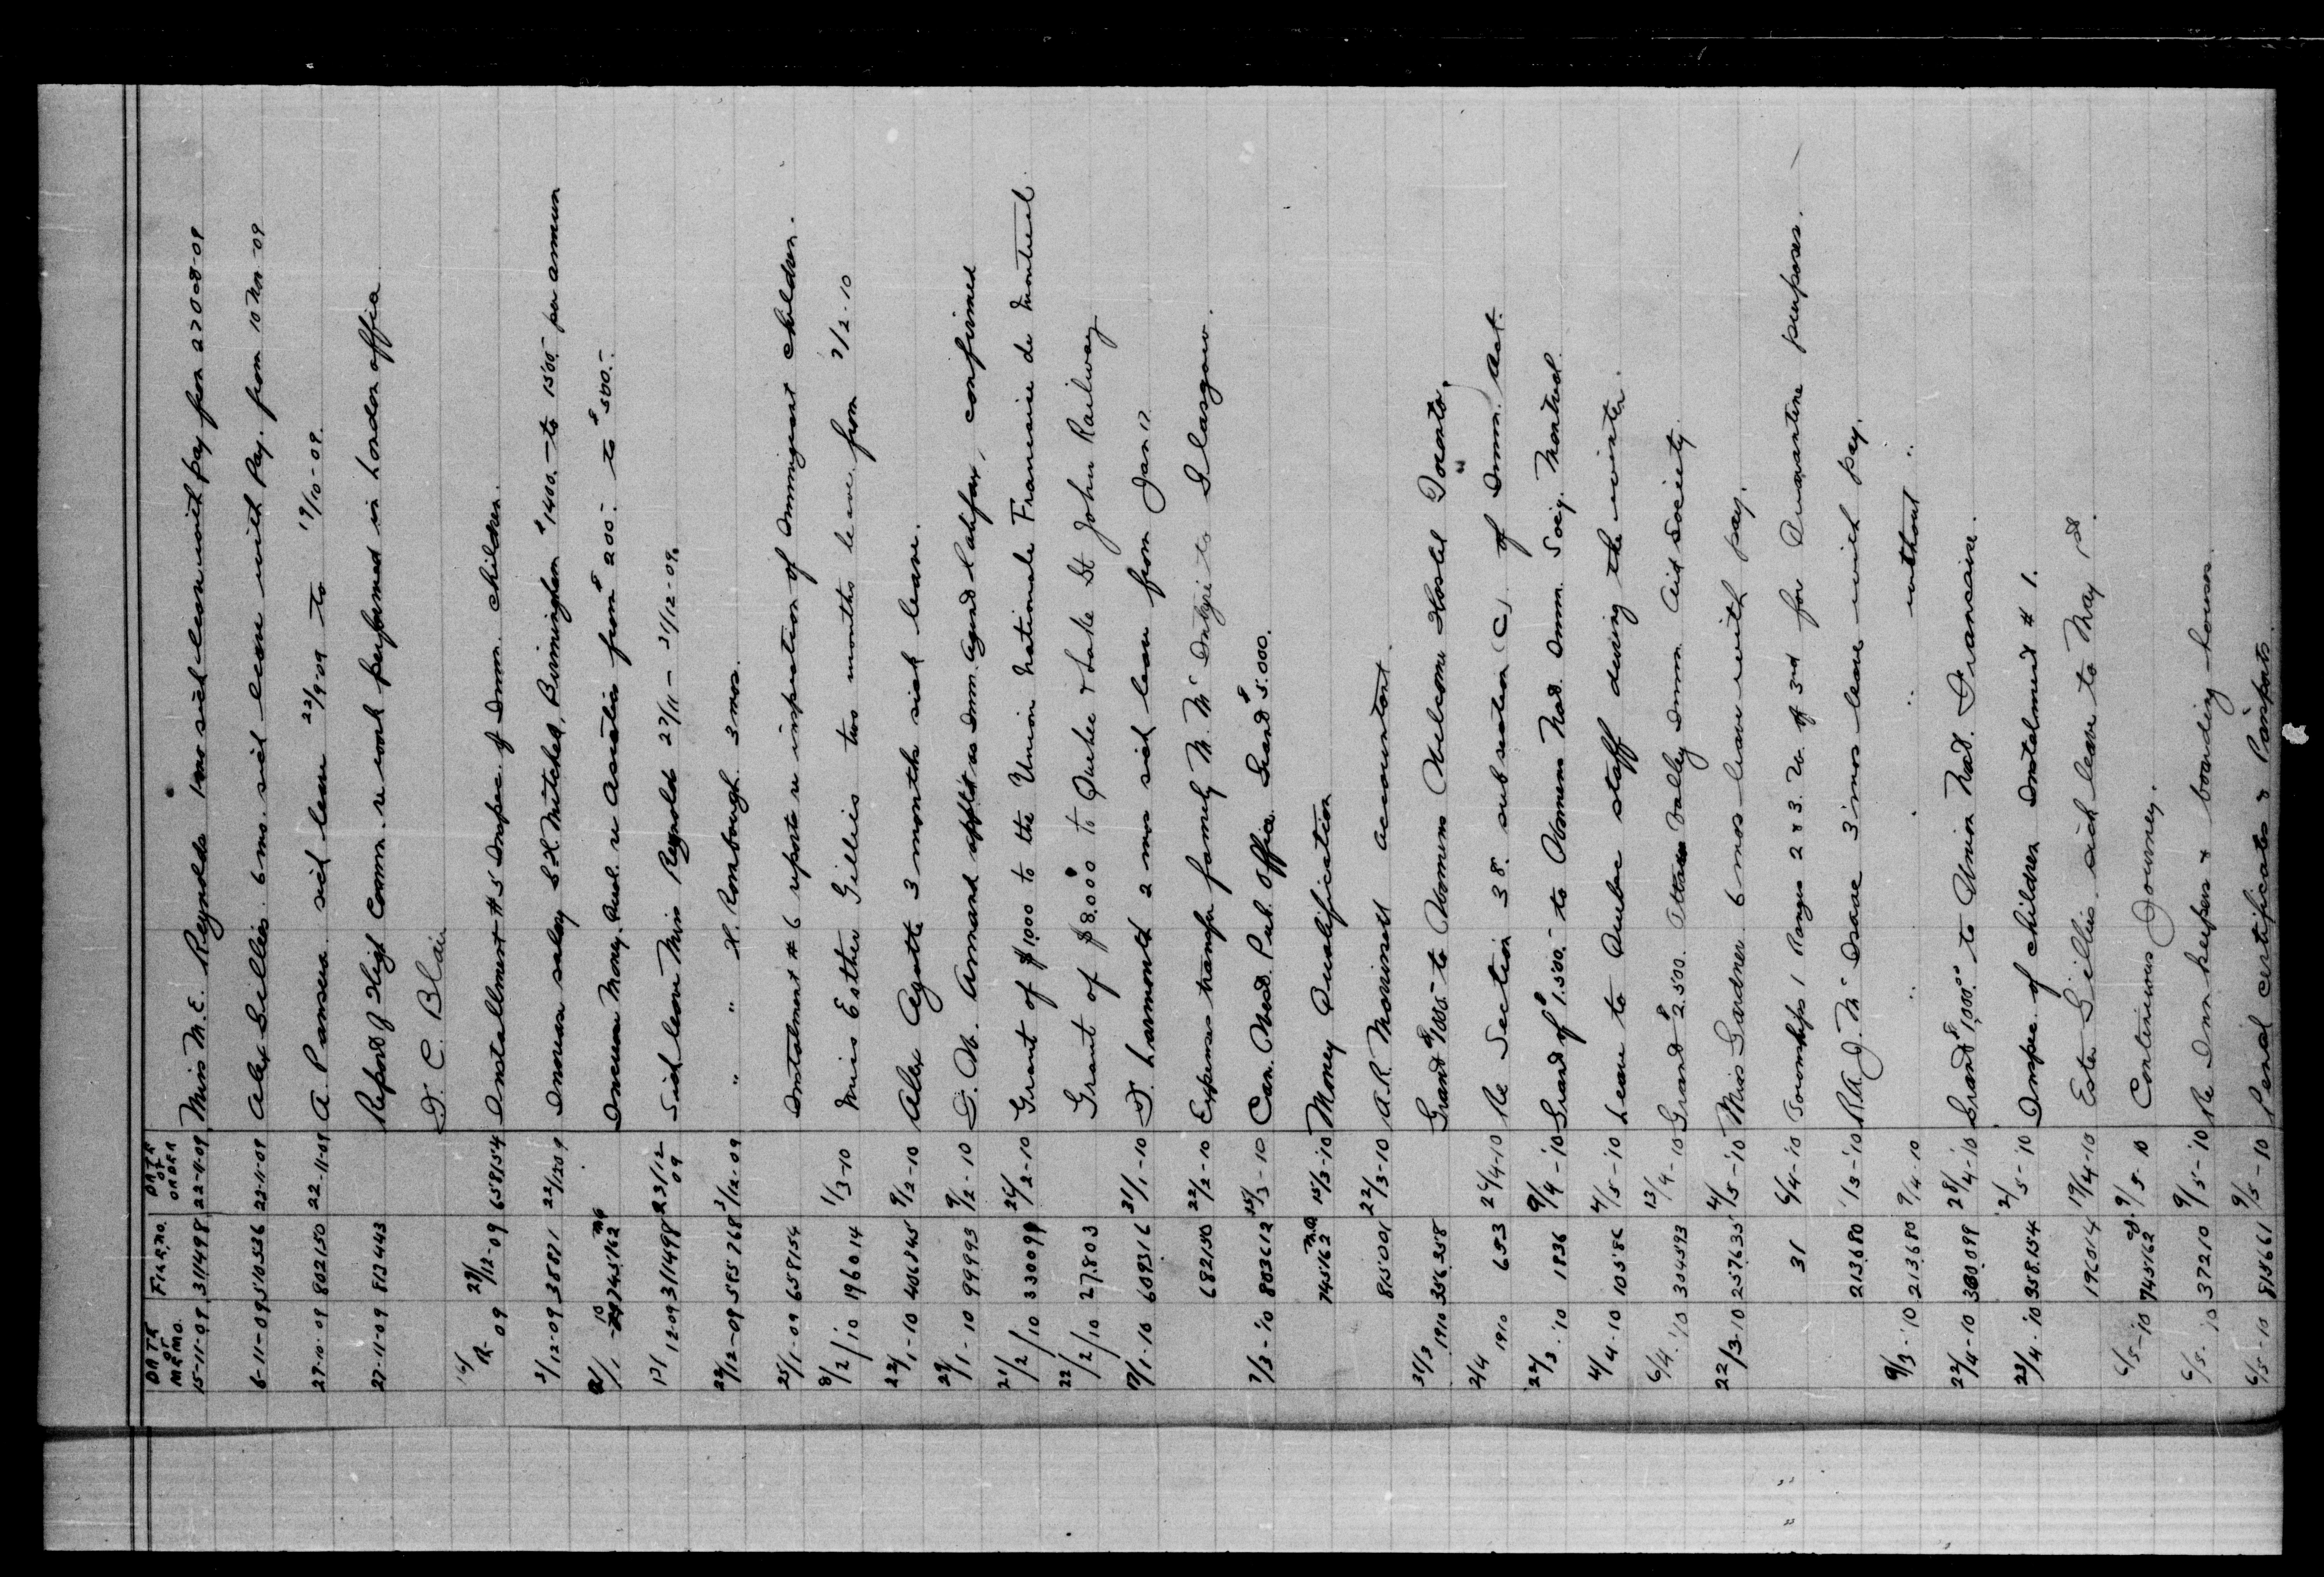 DATE OF MEMO. FILE NO. DATE OF ORDER
15-11-09 311498 22-11-09 Miss M. E. Reynolds 1 mo sick leave with pay from 27-8-09
6-11-09 510536 22-11-09 Alex Gillies. 6 mo. sick leave with Pay. from 10 Nov-09
27-10-09 802150 22-11-09 A. Pansua. sick leave 22/9-09 to 19/10-09.
27-11-09 812443 Report of High Comm. re work performed in London office
F. C. Blair
09 29/12-09 658154 Installment #5 Inspec. of Imm. children.
3/12-09 38871 22/12 09 Increase salary G H Mitchell, Birmingham $1400.- to 1500.- per annum
745162 Increase Money Qual. re Asiatics from $200.- to $500.-
17/12-09 311498 23/12 09 Sick leave Miss Reynolds 27/11 - 31/12-09.
22/12-09 595768 3/12-09 " " H. Rombough. 3 mos.
25/1-09 658154 Instalment # 6 reports re inspection of Immigrant children.
8/2/10 196014 1/3-10 Miss Esther Gillies two months leave from 7/2-10
22/1-10 406845 9/2-10 Alex Ayotte 3 months sick leave.
29/1-10 99993 9/2-10 L. W. Annand appt'd as Imm. Agend Halifax, confirmed
21/2/10 33099 26/2-10 Grant of $1,000 to the Union Nationale Francaise de Montreal.
22/2/10 27803 Grant of $8,000 to Quebec & Lake St John Railway
17/1-10 609316 31/1-10 D. Larmonth 2 mos sick leave from Jan 17
682150 22/2-10 Expenses transfer family M. McIntyre to Glasgow.
7/3-'10 803612 15/3-10 Can. West. Pub. Office. Grand $5.000.
745162 15/3-'10 Money Qualification
815001 22/3-10 A. R. Morrisett accountant.
31/3 1910 356358 Grand $1000.- to Womens Welcome Hostel Toronto.
2/4 1910 653 26/4-10 Re Section 38. subsection (C) of Imm. Act.
22/3-'10 1836 9/4-'10 Grand of $1.500.- to Womens Nat. Imm. Socy. Montreal
4/4-10 10586 4/5-'10 Leave to Quebec staff during the winter.
6/4-'10 304593 13/4-10 Grand $2.500. Ottawa Valley Imm. Aid Society
22/3-10 257635 4/5-'10 Miss Gardner 6 mos leave with pay.
31 6/4-'10 Townships 1 Ranges 2 & 3. W. of 3rd for Quarantine purposes.
213680 1/3-'10 Re J. Mc Isaac 3 mos leave with pay.
9/3-'10 213680 9/4-10 " " " without "
22/4-10 330099 28/4-'10 Grand $1,000.00 to Union Nat. Francaise.
23/4-'10 358154 2/5-'10 Inspec. of children Instalment # 1.
196014 19/4-10 Ester Gillies. sick leave to May 1st.
6/5-'10 745162 9/5-10 Continuous Journey.
6/5-10 37210 9/5-'10 Re Inn keepers & boarding houses
6/5-10 815661 9/5-10 Penal certificates & Passports.